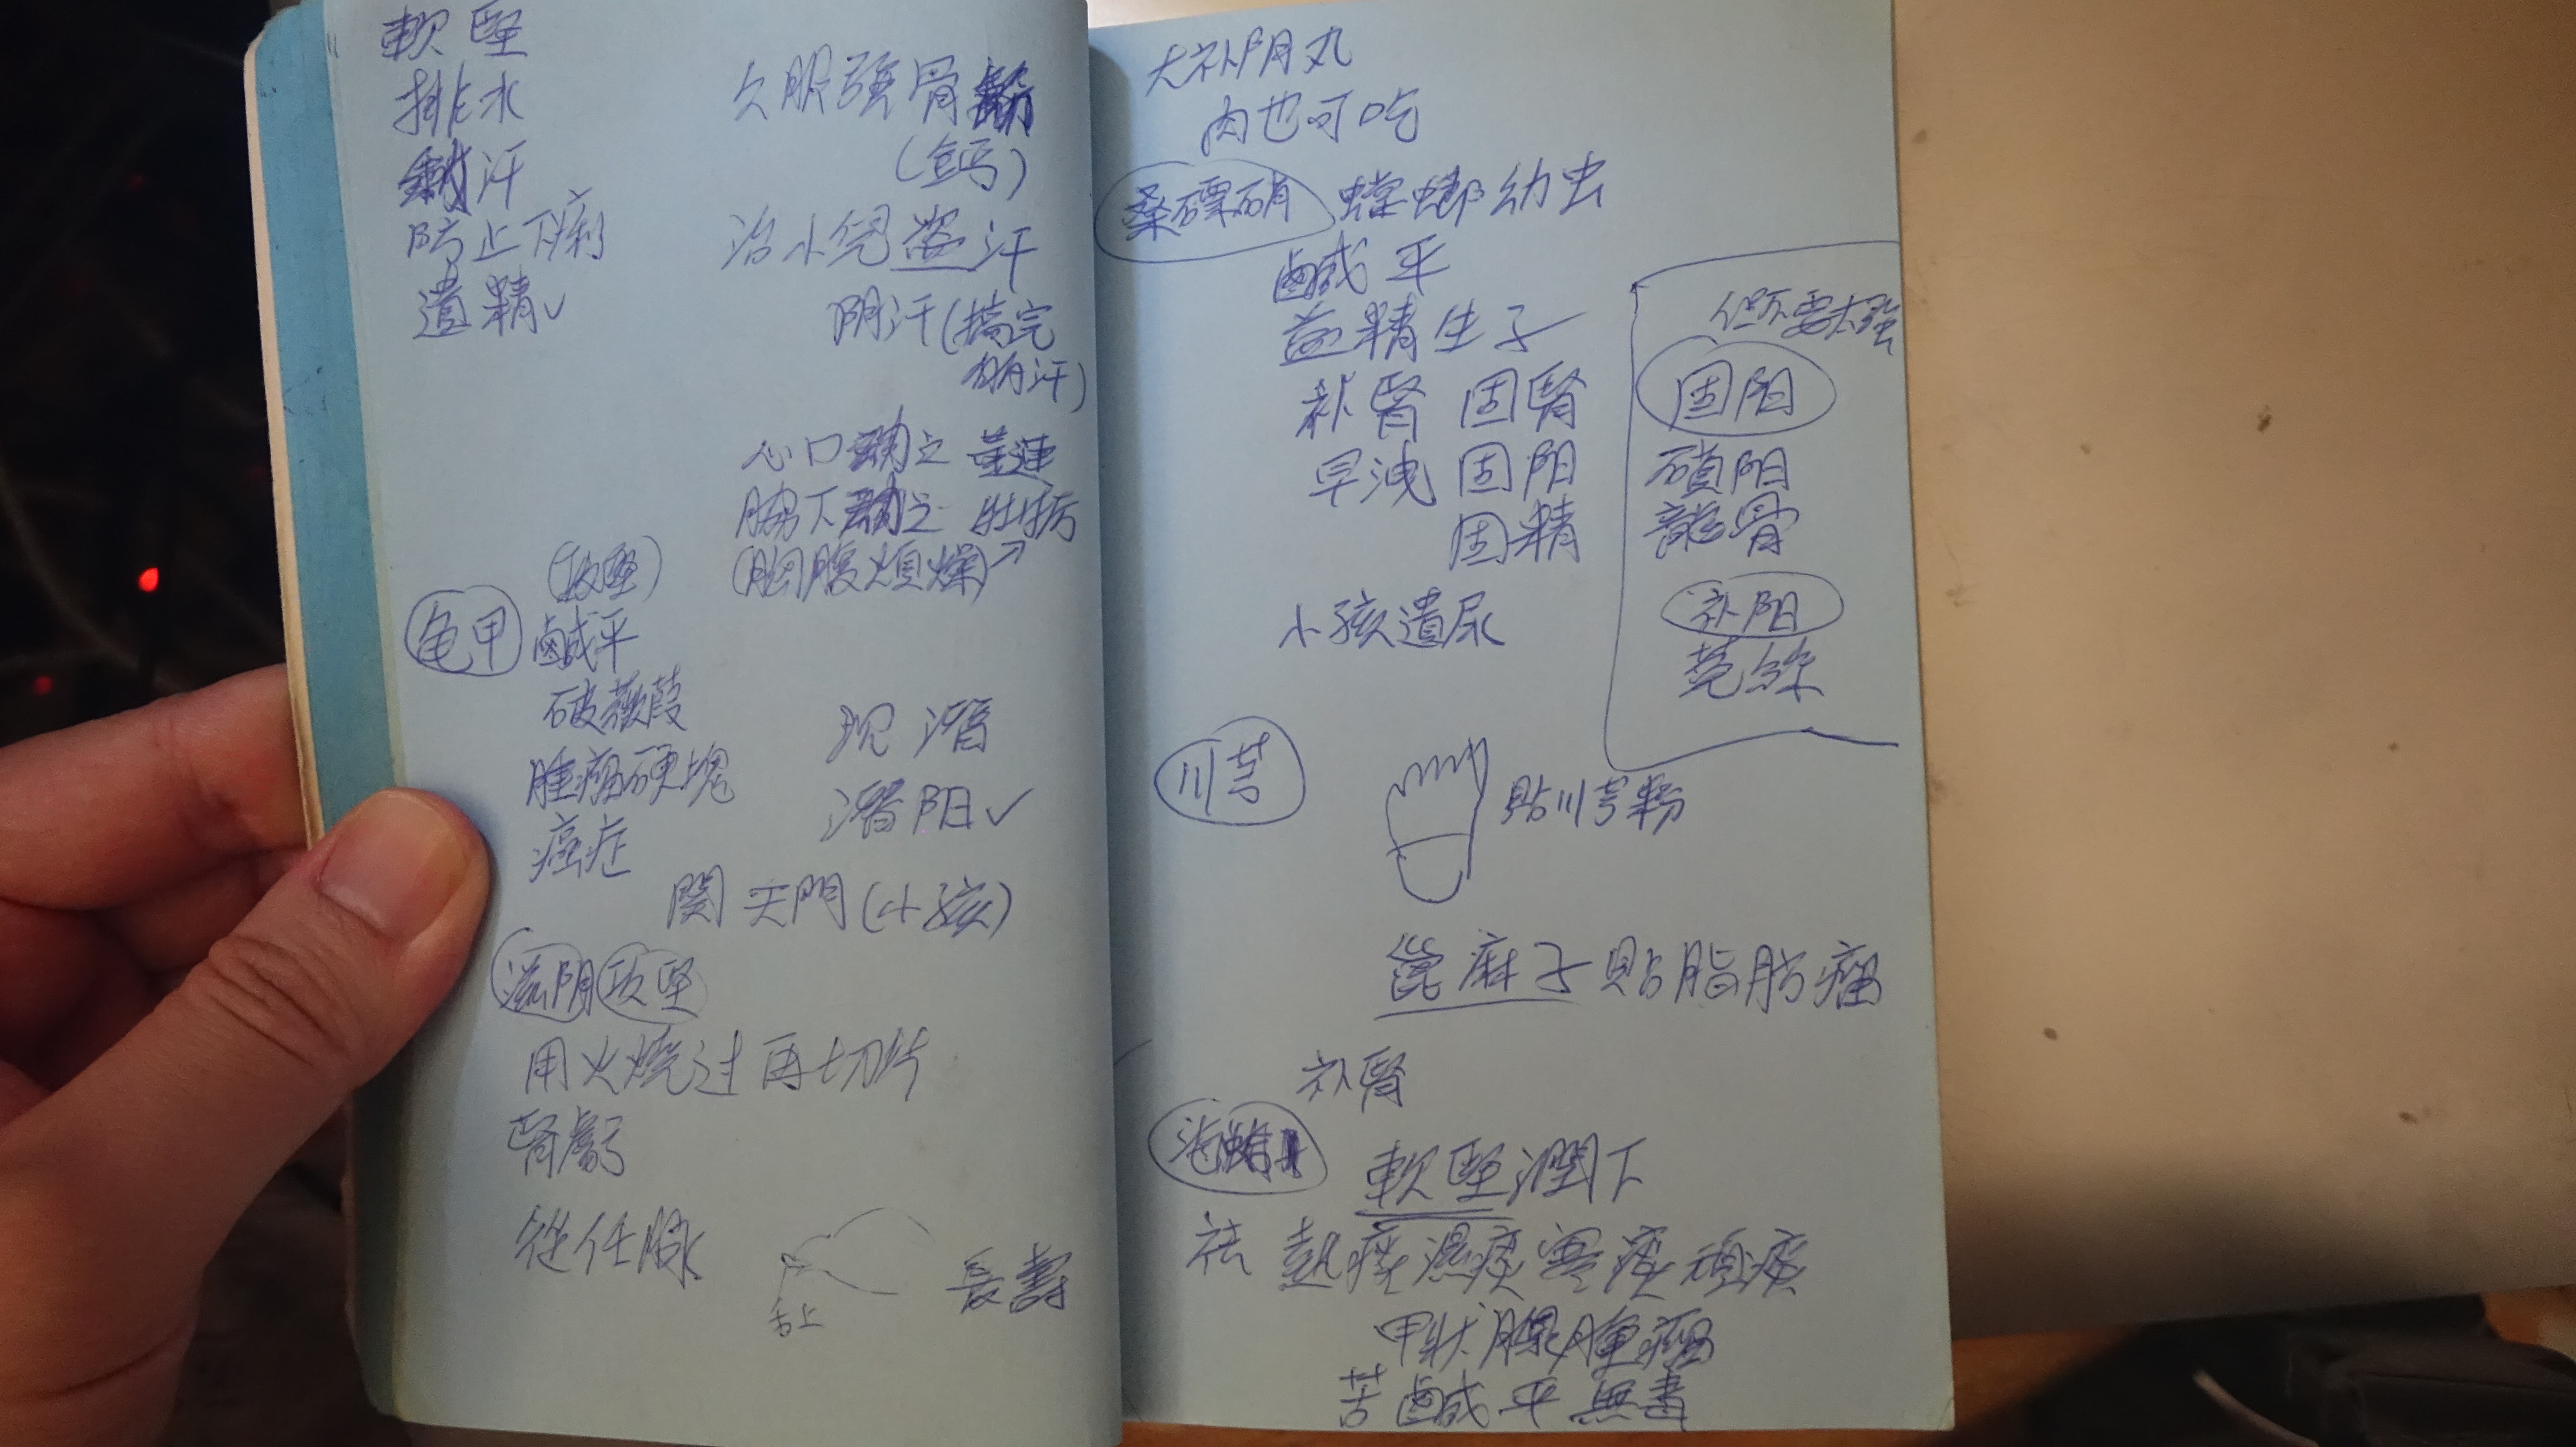 軟堅
排水
斂汗
防止下痢
遺精✓
久服強骨節
(鈣)
治小兒盜汗
阴汗(搞完
稍汗)
心口動之 黃連
臍下動之 牡蛎
(胸腹煩燥)↗
(攻堅)
龟甲 鹹平
破癥瘕
腫瘤硬塊
癌症
沉潛
潛阳✓
関天門(小孩)
滋阴攻坚
用火燒过再切片
腎虧
從任脈
舌上
長壽
大补阴丸
肉也可吃
桑螵硝 螳螂幼虫
鹹平
益精生子
补腎 固腎
早洩 固阳
固精
小孩遺尿
但不要太強
固阳
鎖阳
龍骨
补阳
菟絲
川芎
貼川芎粉
蓖麻子貼脂肪瘤
补腎
海蛤
軟堅潤下
祛 熱痰濕痰寒痰頑痰
甲狀腺腫瘤
苦鹹平無毒